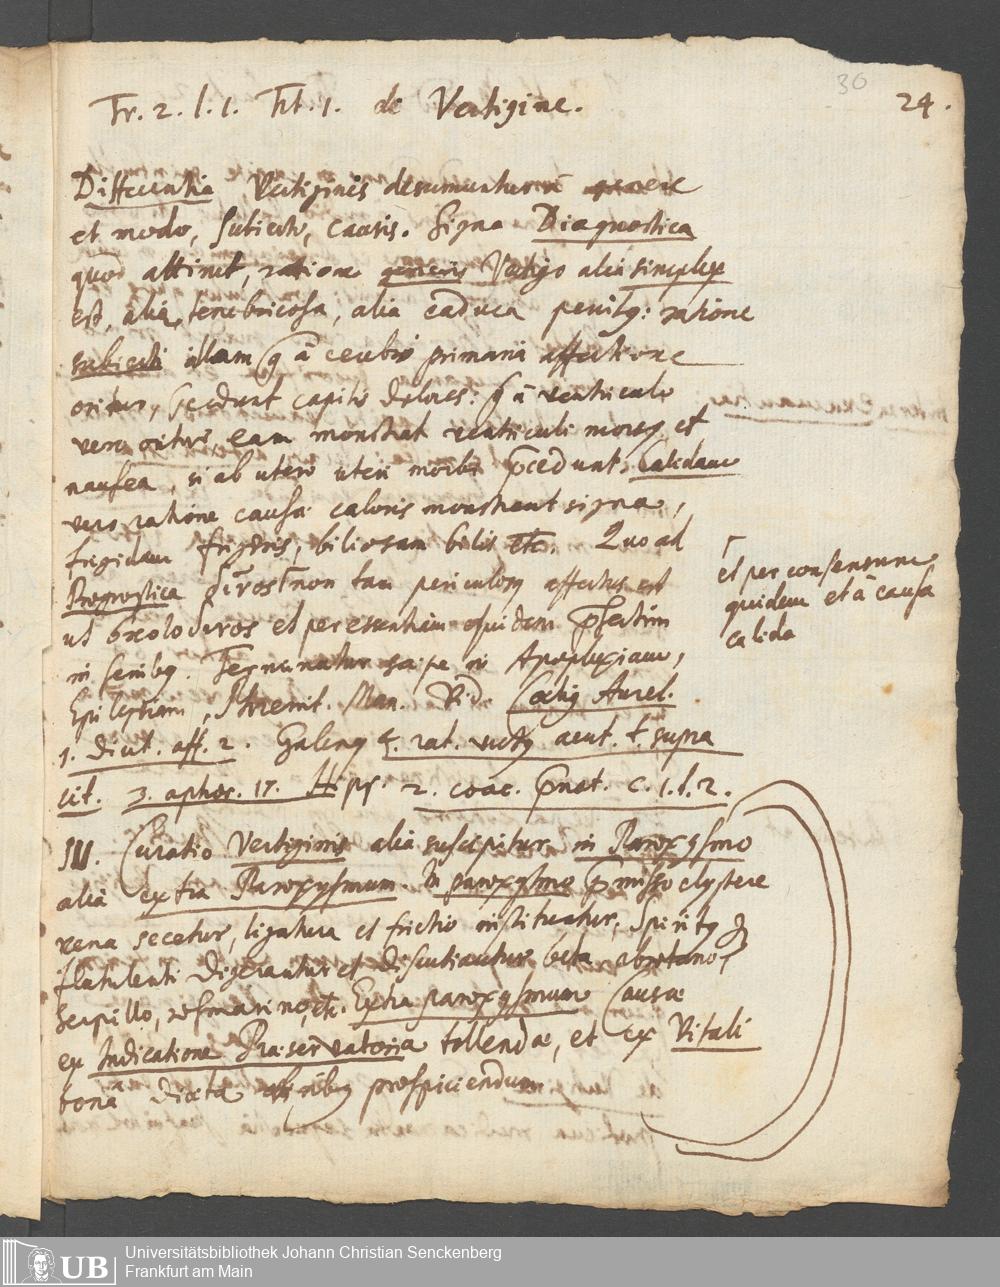 30
24.
Tr. 2. l. 1. Tit. 1. de Vertigine.
Differentia Vertiginis desumuntur à genere
et modo, subiecto, causis. Signa Diagnostica
quod attinet, ratione generis Vertigo alia simplex
est, alia tenebricosa, alia caduca penitq: ratione
subiecti illam q à cerebri primaria affectione
oritur, pcedunt capitis dolores: q à ventriculo
vero oritur, eam monstrat ventriculi morsq et
nausea, si ab utero uteri morbi pcedunt. Calidam
vero ratione causæ caloris monstrant signa,
frigidam frigoris, biliosam bilis etc. Quo ad
Prognostica non tam periculosq affectus est
ut et per essentiam quidem psertim
in senibq. Terminatur sæpe in Apoplexiam,
Epilepsiam, Man. Vid. Cæliq Aurel.
1. diut. aff. 2. Galenq 4. rat. victq acut. t. supra
cit. 3. aphor. 17. Hipp. 2. coac. pnot. c. 1. l. 2.
et per consensum
quidem et à causa
calida
III. Curatio Vertiginis alia suscipitur in Paroxysmo
alia extra Paroxysmum. In paroxysmo pmisso clystere
vena secetur, ligatura et frictio instituatur, Spiritq
flatulenti digerantur et discutiantur beta abrotano,
serpillo, rosmarino, etc. Extra paroxysmum Causæ
ex Indicatione Præservatoria tollendæ, et ex Vitali
bona diæta prospiciendum
UB
Universitätsbibliothek Johann Christian Senckenberg
Frankfurt am Main